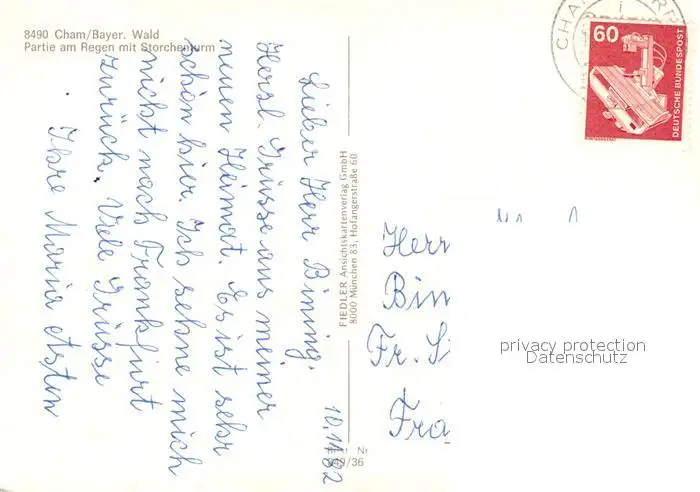 8490 Cham/Bayer. Wald
Partie am Regen mit Storchenturm
Lieber Herr Bining.
Herzl. Grüsse aus meiner
neuen Heimat. Es ist sehr
schön hier. Ich sehne mich
nicht nach Frankfurt
zurück. Viele Grüsse
Ihre Maria Asten
10.11.82
FIEDLER Ansichtskartenverlag GmbH
8000 München 83, Hofangerstraße 60
Nr
849/36
CHAM
60
DEUTSCHE BUNDESPOST
Herr
Bin
Fr. S
Fra
privacy protection
Datenschutz